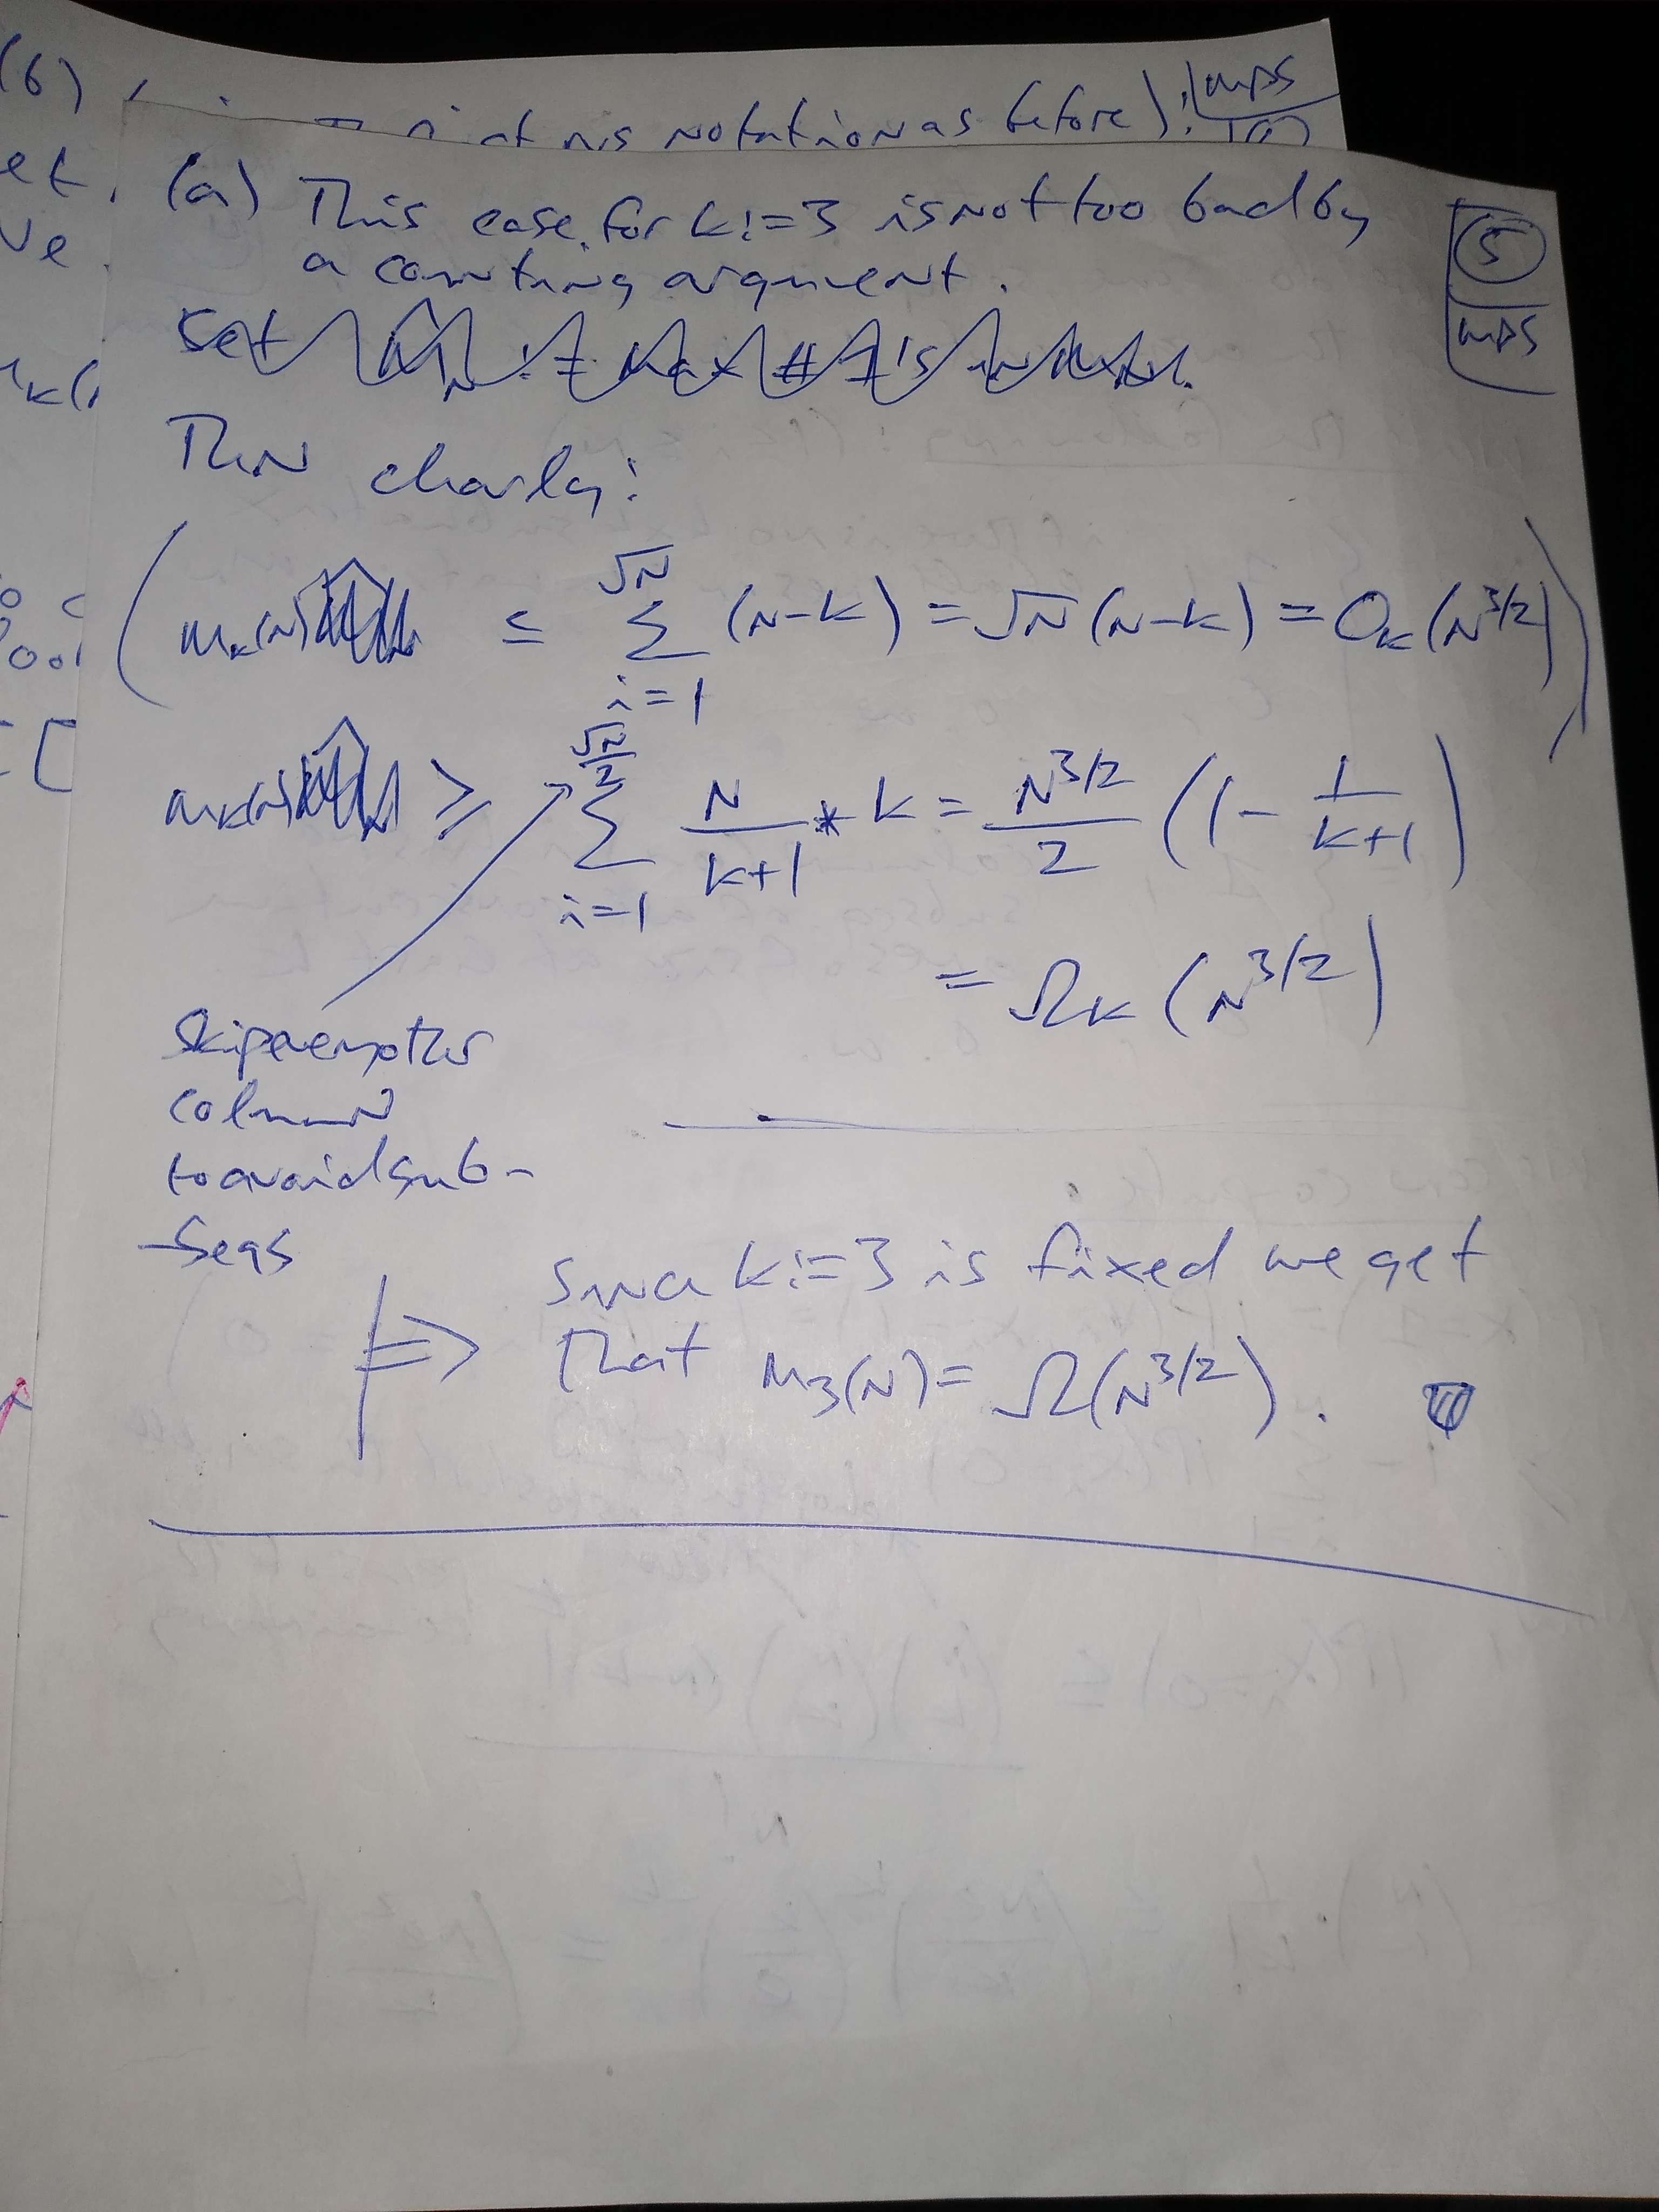 (6)
at nis notation as before).
MDS
10
et.
ve
(a) This case for k:=3 is not too bad by
a counting argument.
5
MDS
Set M_N := Max # 1's in
Then clearly:
( m_k(N) ≤ ∑_{i=1}^{√N} (N-k) = √N (N-k) = O_k (N^{3/2}) )
m_k(N) ≥ ∑_{i=1}^{√N/2} N/(k+1) * k = N^{3/2}/2 (1 - 1/(k+1))
= Ω_k (N^{3/2})
Skip every other
column
to avoid sub-
-seqs
⟹ Since k:=3 is fixed we get
that M_3(N) = Ω(N^{3/2}).